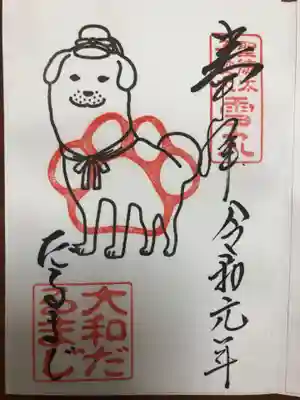 雪丸
奉拝 令和元年
だるまじ
大和だ
るまじ